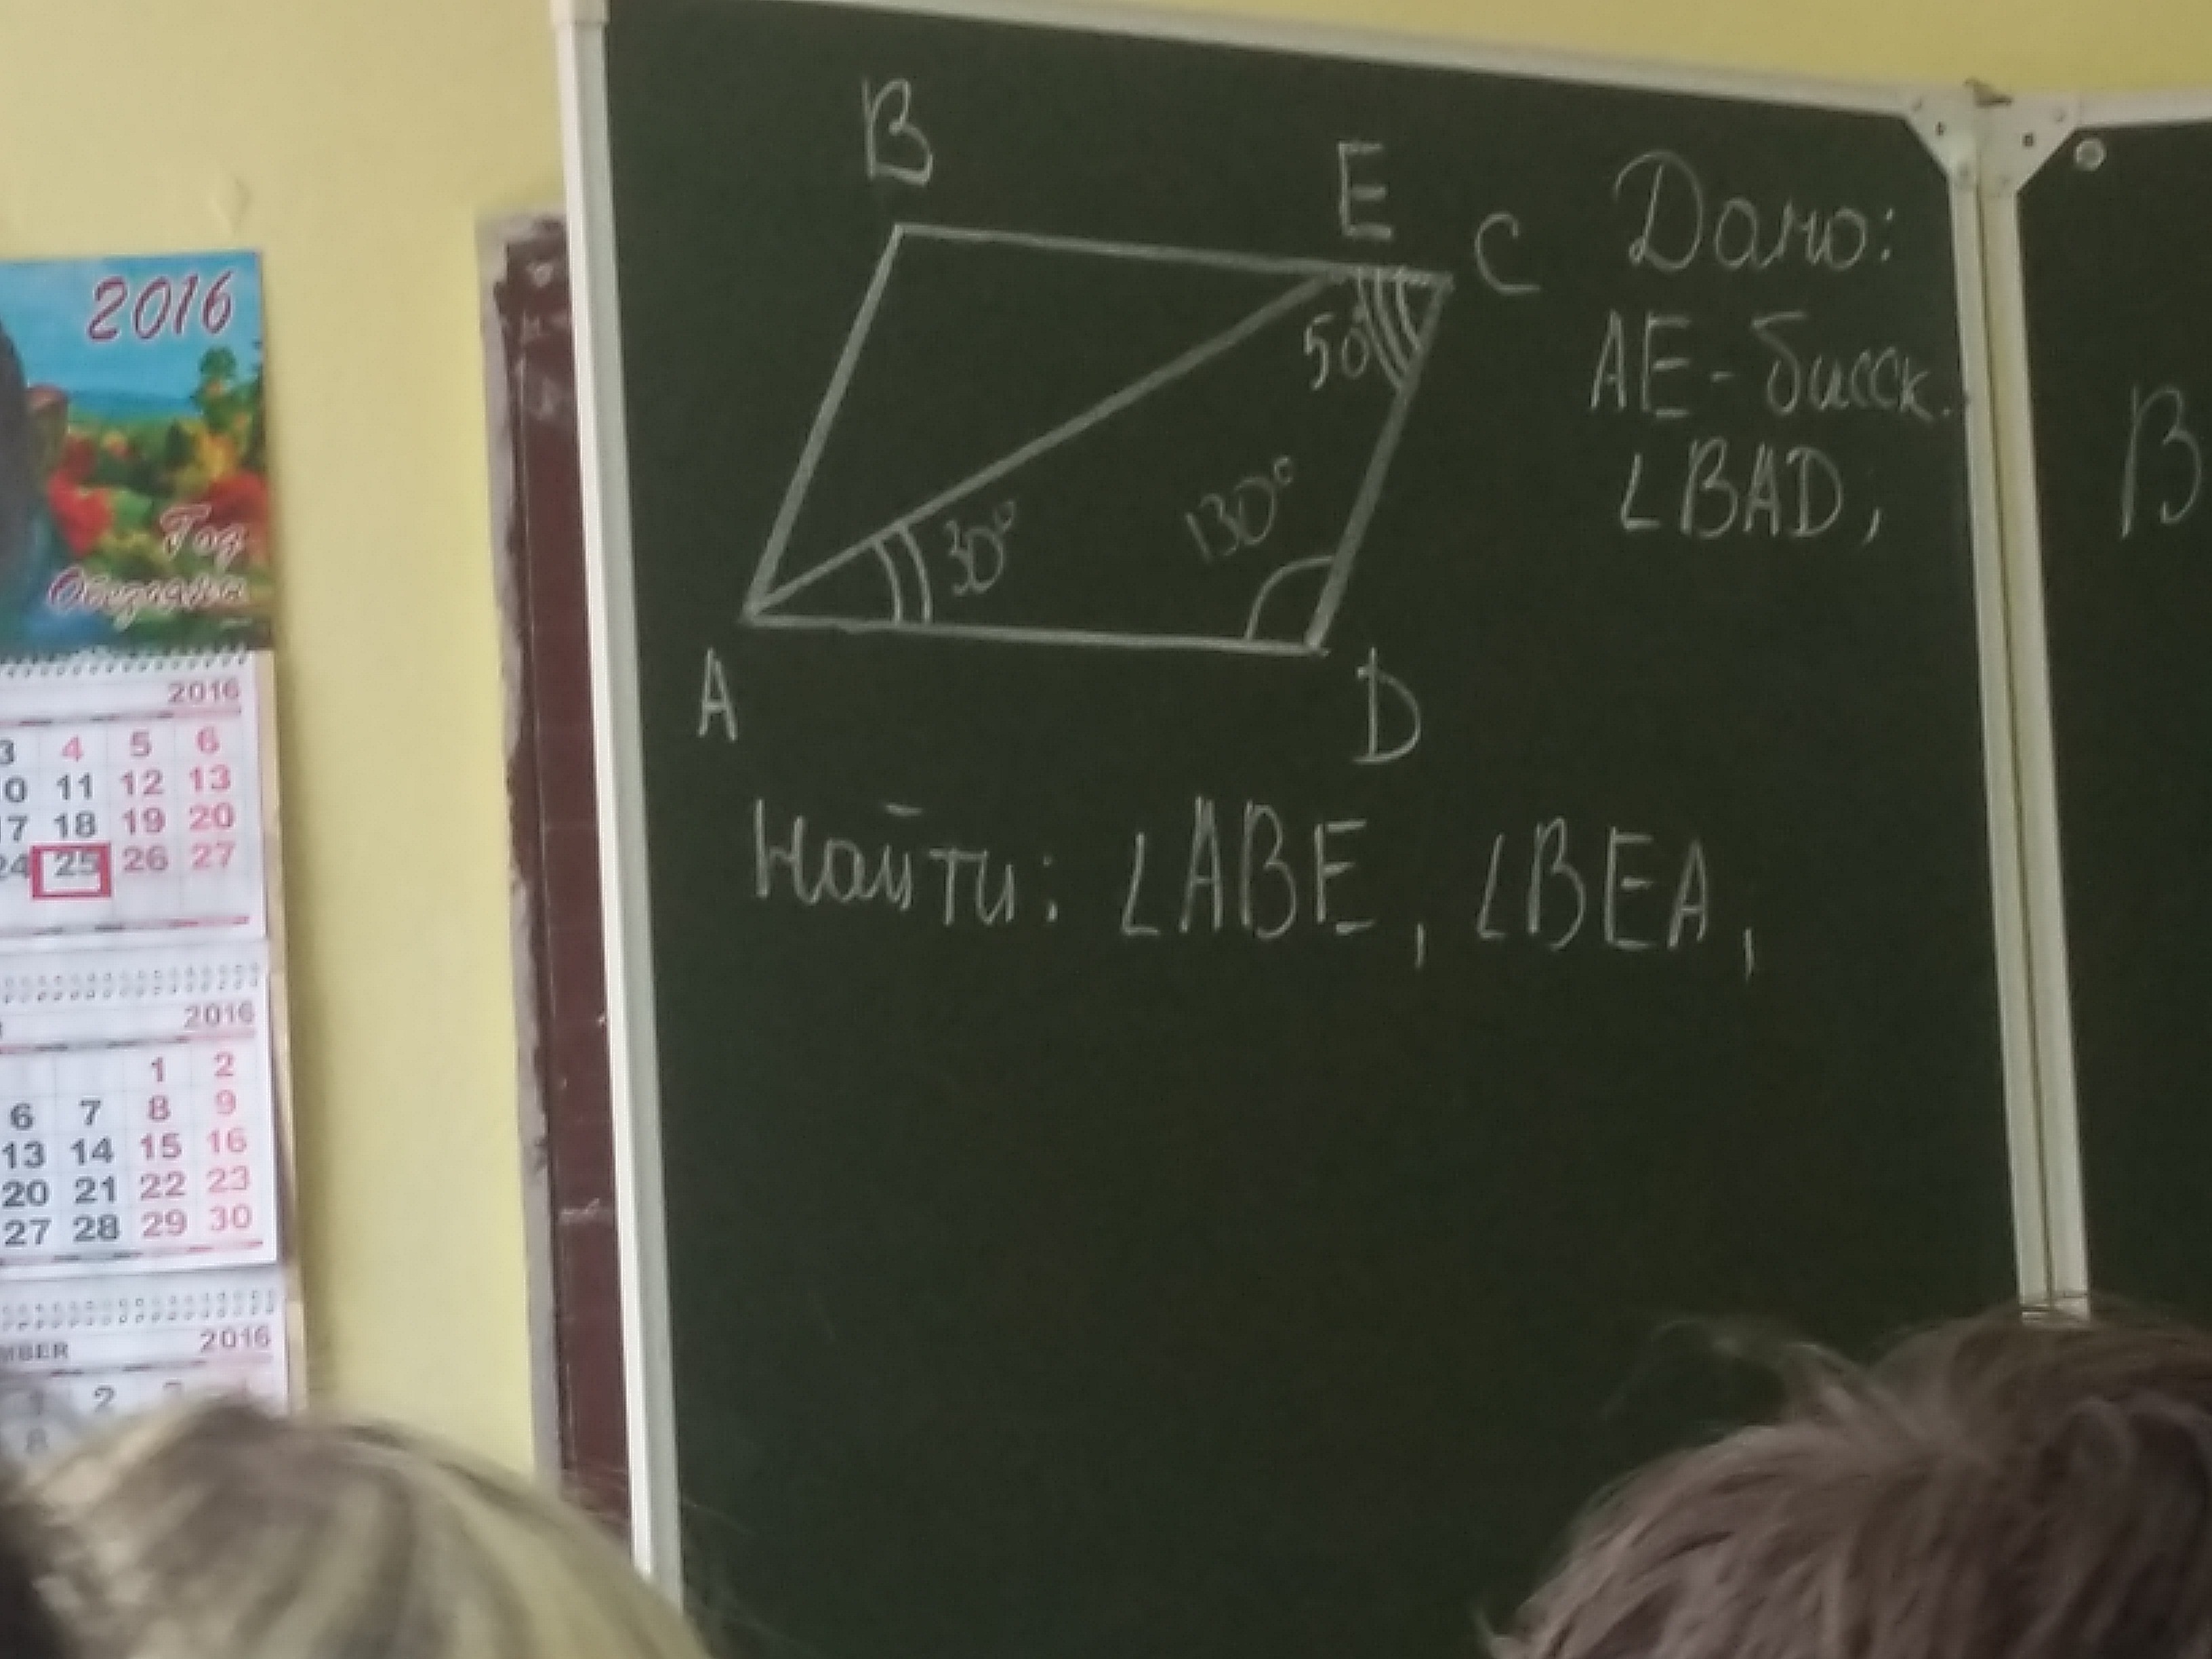 2016
Год
Обезьяны
2016
3 4 5 6
10 11 12 13
17 18 19 20
24 25 26 27
2016
1 2
6 7 8 9
13 14 15 16
20 21 22 23
27 28 29 30
2016
1 2
8
B
E
C
50
30°
130°
A
D
Дано:
AE - бисск.
∠BAD;
Найти: ∠ABE, ∠BEA,
В